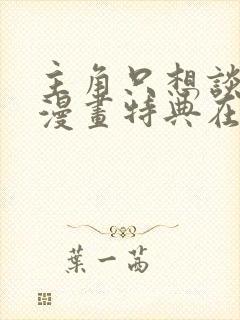 主角只想談
漫畫特典在
葉一茜